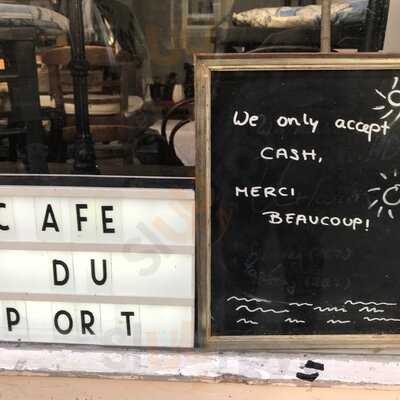 CAFE
DU
PORT
We only accept
CASH,
MERCI
BEAUCOUP!